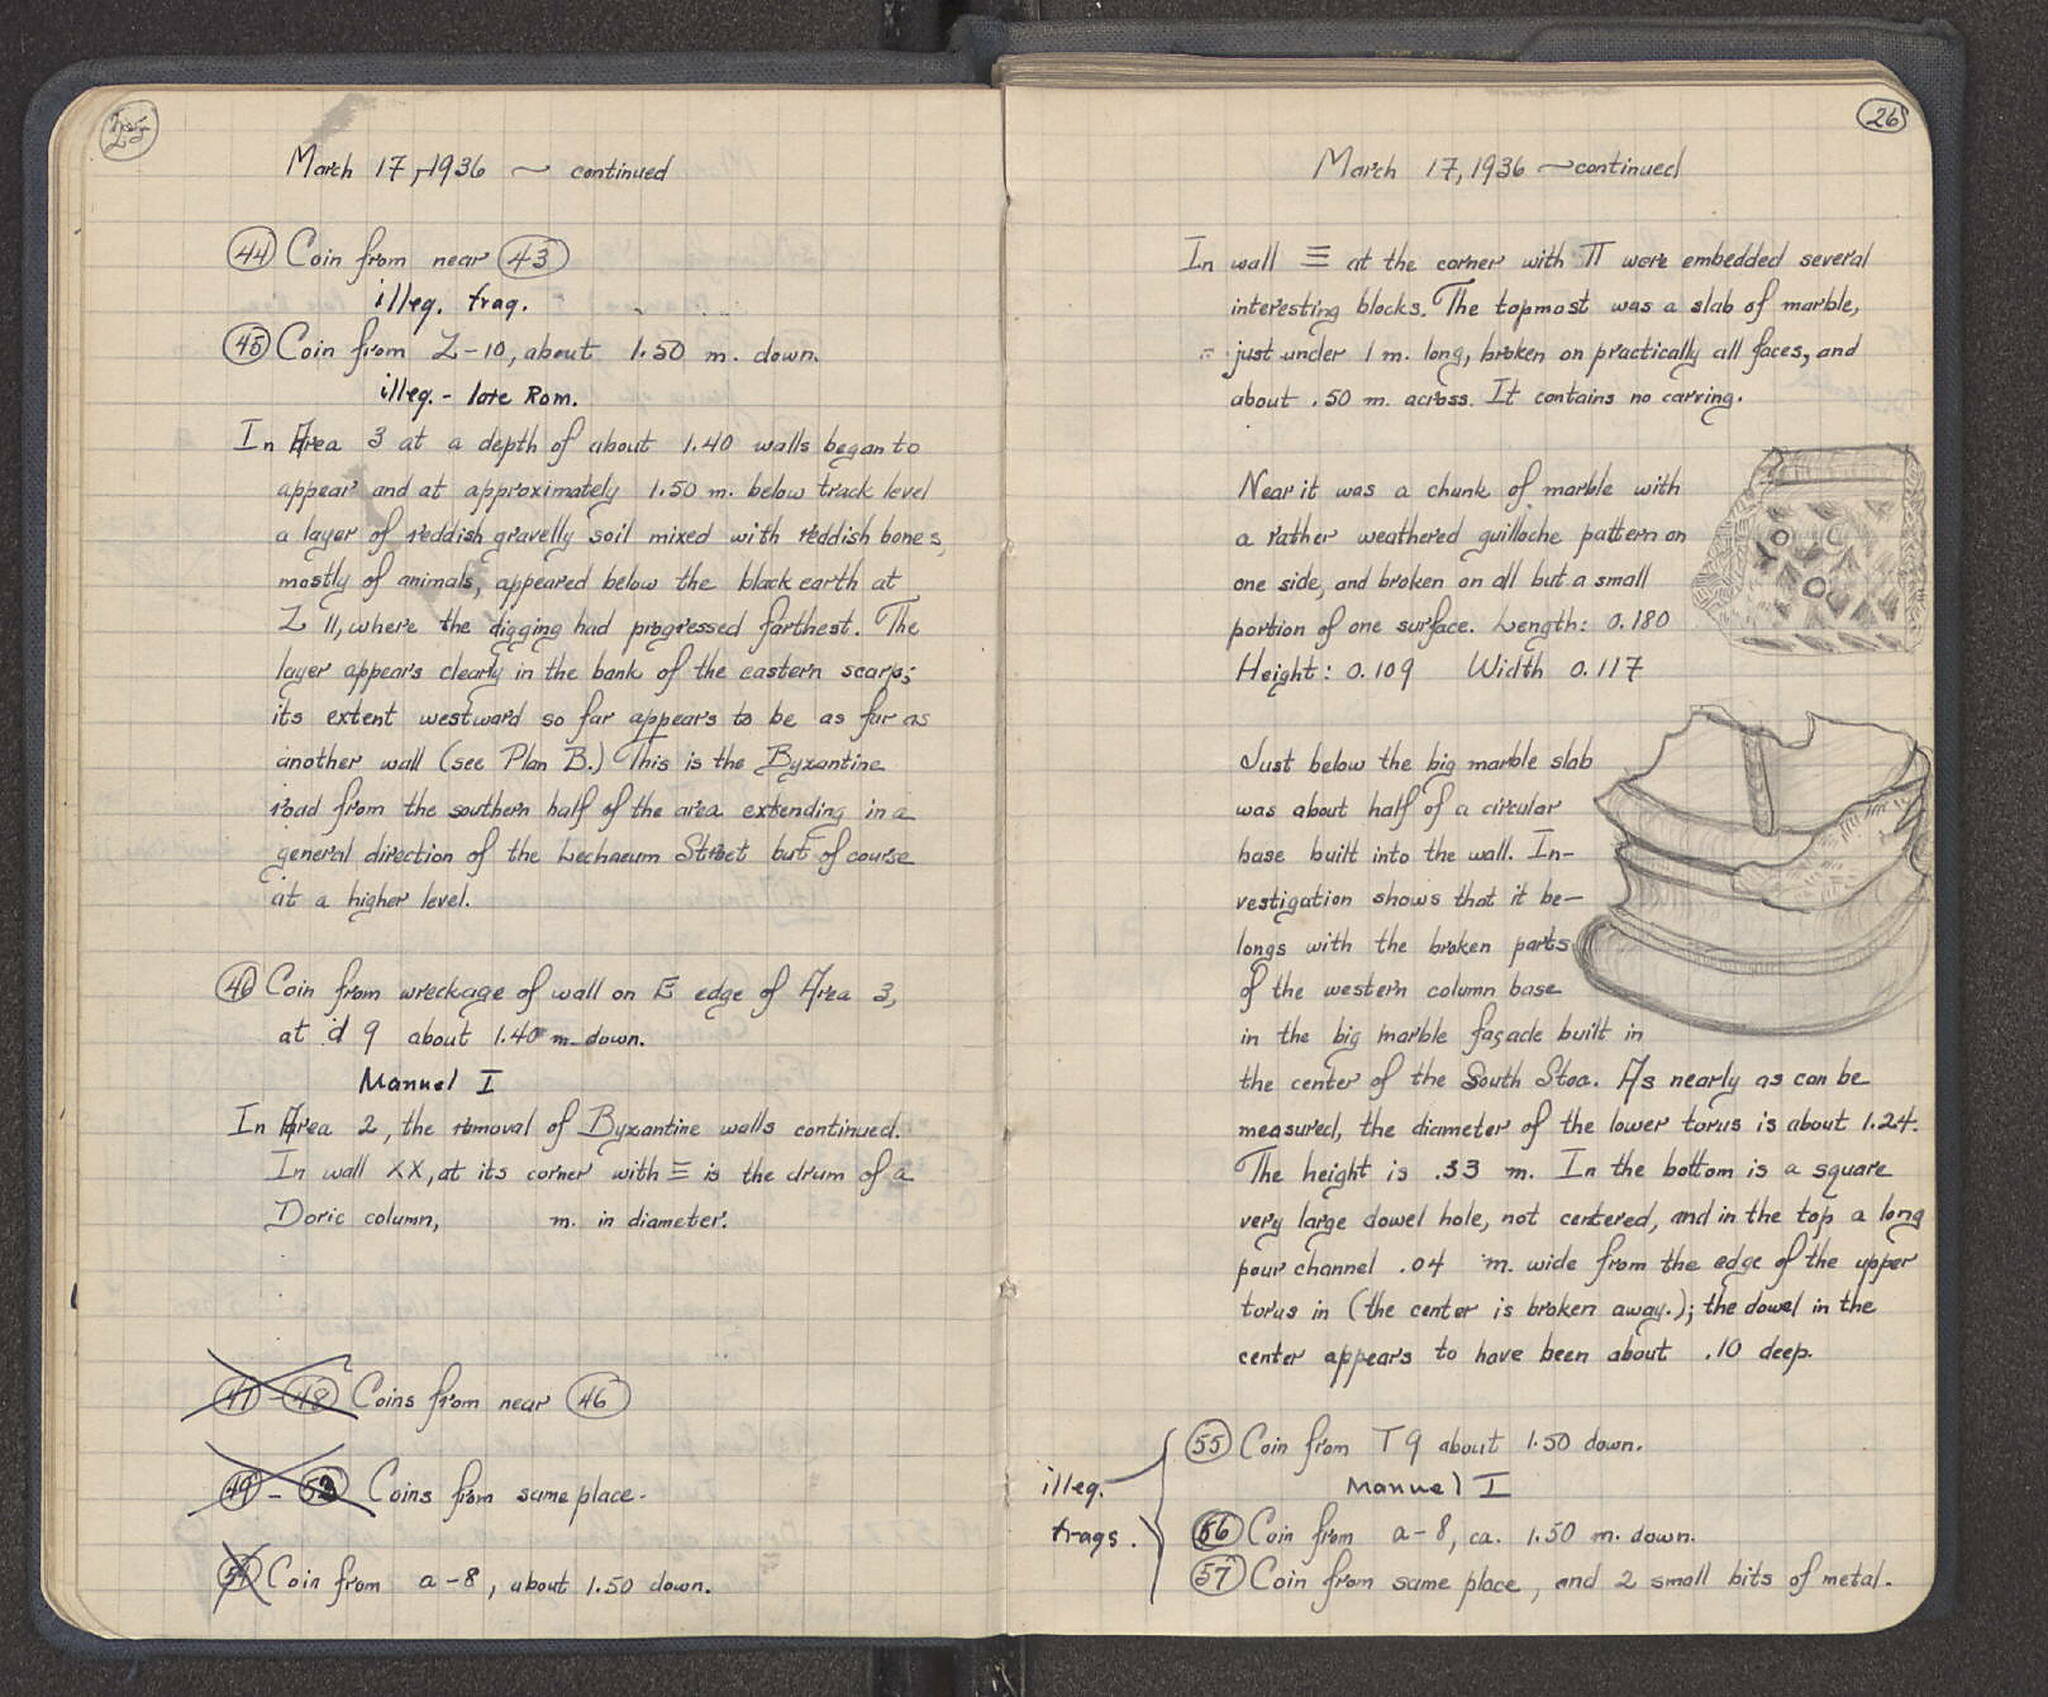 25
March 17, 1936 ~ continued
44 Coin from near 43
illeg. frag.
45 Coin from Z-10, about 1.50 m. down.
illeg. - late Rom.
In Area 3 at a depth of about 1.40 walls began to
appear and at approximately 1.50 m. below track level
a layer of reddish gravelly soil mixed with reddish bones,
mostly of animals, appeared below the black earth at
Z 11, where the digging had progressed farthest. The
layer appears clearly in the bank of the eastern scarp;
its extent westward so far appears to be as far as
another wall (see Plan B.) This is the Byzantine
road from the southern half of the area extending in a
general direction of the Lechaeum Street but of course
at a higher level.
46 Coin from wreckage of wall on E edge of Area 3,
at d 9 about 1.40 m. down.
Manuel I
In Area 2, the removal of Byzantine walls continued.
In wall XX, at its corner with Ξ is the drum of a
Doric column, m. in diameter.
47 - 48 Coins from near 46
49 - 53 Coins from same place.
54 Coin from a-8, about 1.50 down.
26
March 17, 1936 ~ continued
In wall Ξ at the corner with Π were embedded several
interesting blocks. The topmost was a slab of marble,
just under 1 m. long, broken on practically all faces, and
about .50 m. across. It contains no carving.
Near it was a chunk of marble with
a rather weathered guilloche pattern on
one side, and broken on all but a small
portion of one surface. Length: 0.180
Height: 0.109 Width 0.117
Just below the big marble slab
was about half of a circular
base built into the wall. In-
vestigation shows that it be-
longs with the broken parts
of the western column base
in the big marble façade built in
the center of the South Stoa. As nearly as can be
measured, the diameter of the lower torus is about 1.24.
The height is .33 m. In the bottom is a square
very large dowel hole, not centered, and in the top a long
pour channel .04 m. wide from the edge of the upper
torus in (the center is broken away.); the dowel in the
center appears to have been about .10 deep.
55 Coin from T 9 about 1.50 down.
illeg.
Manuel I
frags.
56 Coin from a-8, ca. 1.50 m. down.
57 Coin from same place, and 2 small bits of metal.